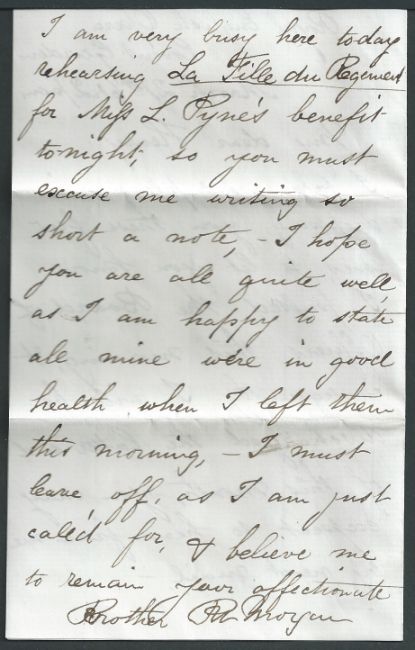 I am very busy here today
rehearsing La Fille du Regiment
for Miss L. Pyne's benefit
to-night, so you must
excuse me writing so
short a note, - I hope
you are all quite well,
as I am happy to state
all mine were in good
health when I left them
this morning, - I must
leave off, as I am just
called for, & believe me
to remain your affectionate
Brother Morgan